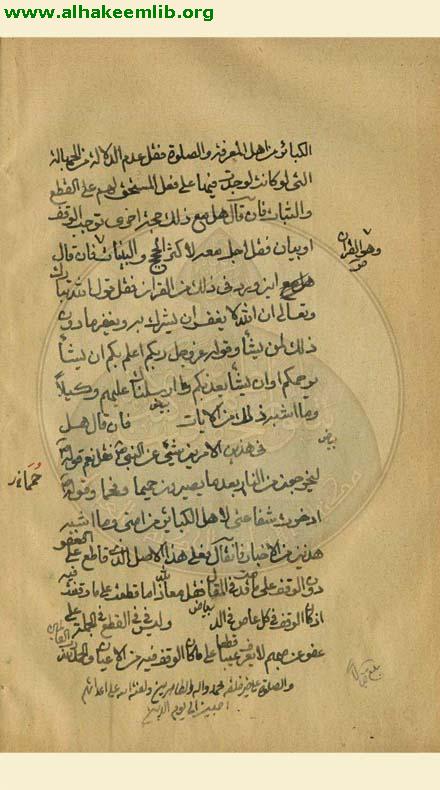 www.alhakeemlib.org
الكبائر من اهل المعرفة والصلوة فقل عدم الدلالة من الجهالة
التى لو كانت لوجدت فيها على فعل المستحق لهم على القطع
والثبات فان قال هل مع ذلك حجة اخرى توجب الوقف
او بيان فقل اجل معى لاكثر الحجج والبينات فان قال
وهو القران
هل مع اين ويرد فى ذلك من القران فقل قول الله تبارك
وتعالى ان الله لا يغفر ان يشرك به ويغفر ما دون
ذلك لمن يشأ وقوله عز وجل ربكم اعلم بكم ان يشأ
يرحمكم او ان يشأ يعذبكم وما ارسلناك عليهم وكيلاً
وما اشبه ذلك من الايات فان قال هل
بياض
فى هذين الامرين شئ عن النبى فقل نعم قوله
ليخرجن من النار بعد ما يصيرون حميما وفحما وقوله
ادخرت شفاعتى لاهل الكبائر من امتى وما اشبه
هذين من الاخبار فان قال فعلى هذا الاصل انت قاطع على
دون الوقف على ما قدمت فى المقال فقل معاذ الله اما قطعت على ما وقفت فيه
اذ كان الوقف فى كل عاص فى الد وليس فى القطع فى الجملة على
بياض
عفو عن بعضهم لا يعرف عينا قطعا على ما كان الوقف فيه من الاعيان والحمد لله
والصلوة على خير خلقه محمد واله الطاهرين ولعنة الله على اعدائهم
اجمعين الى يوم الدين